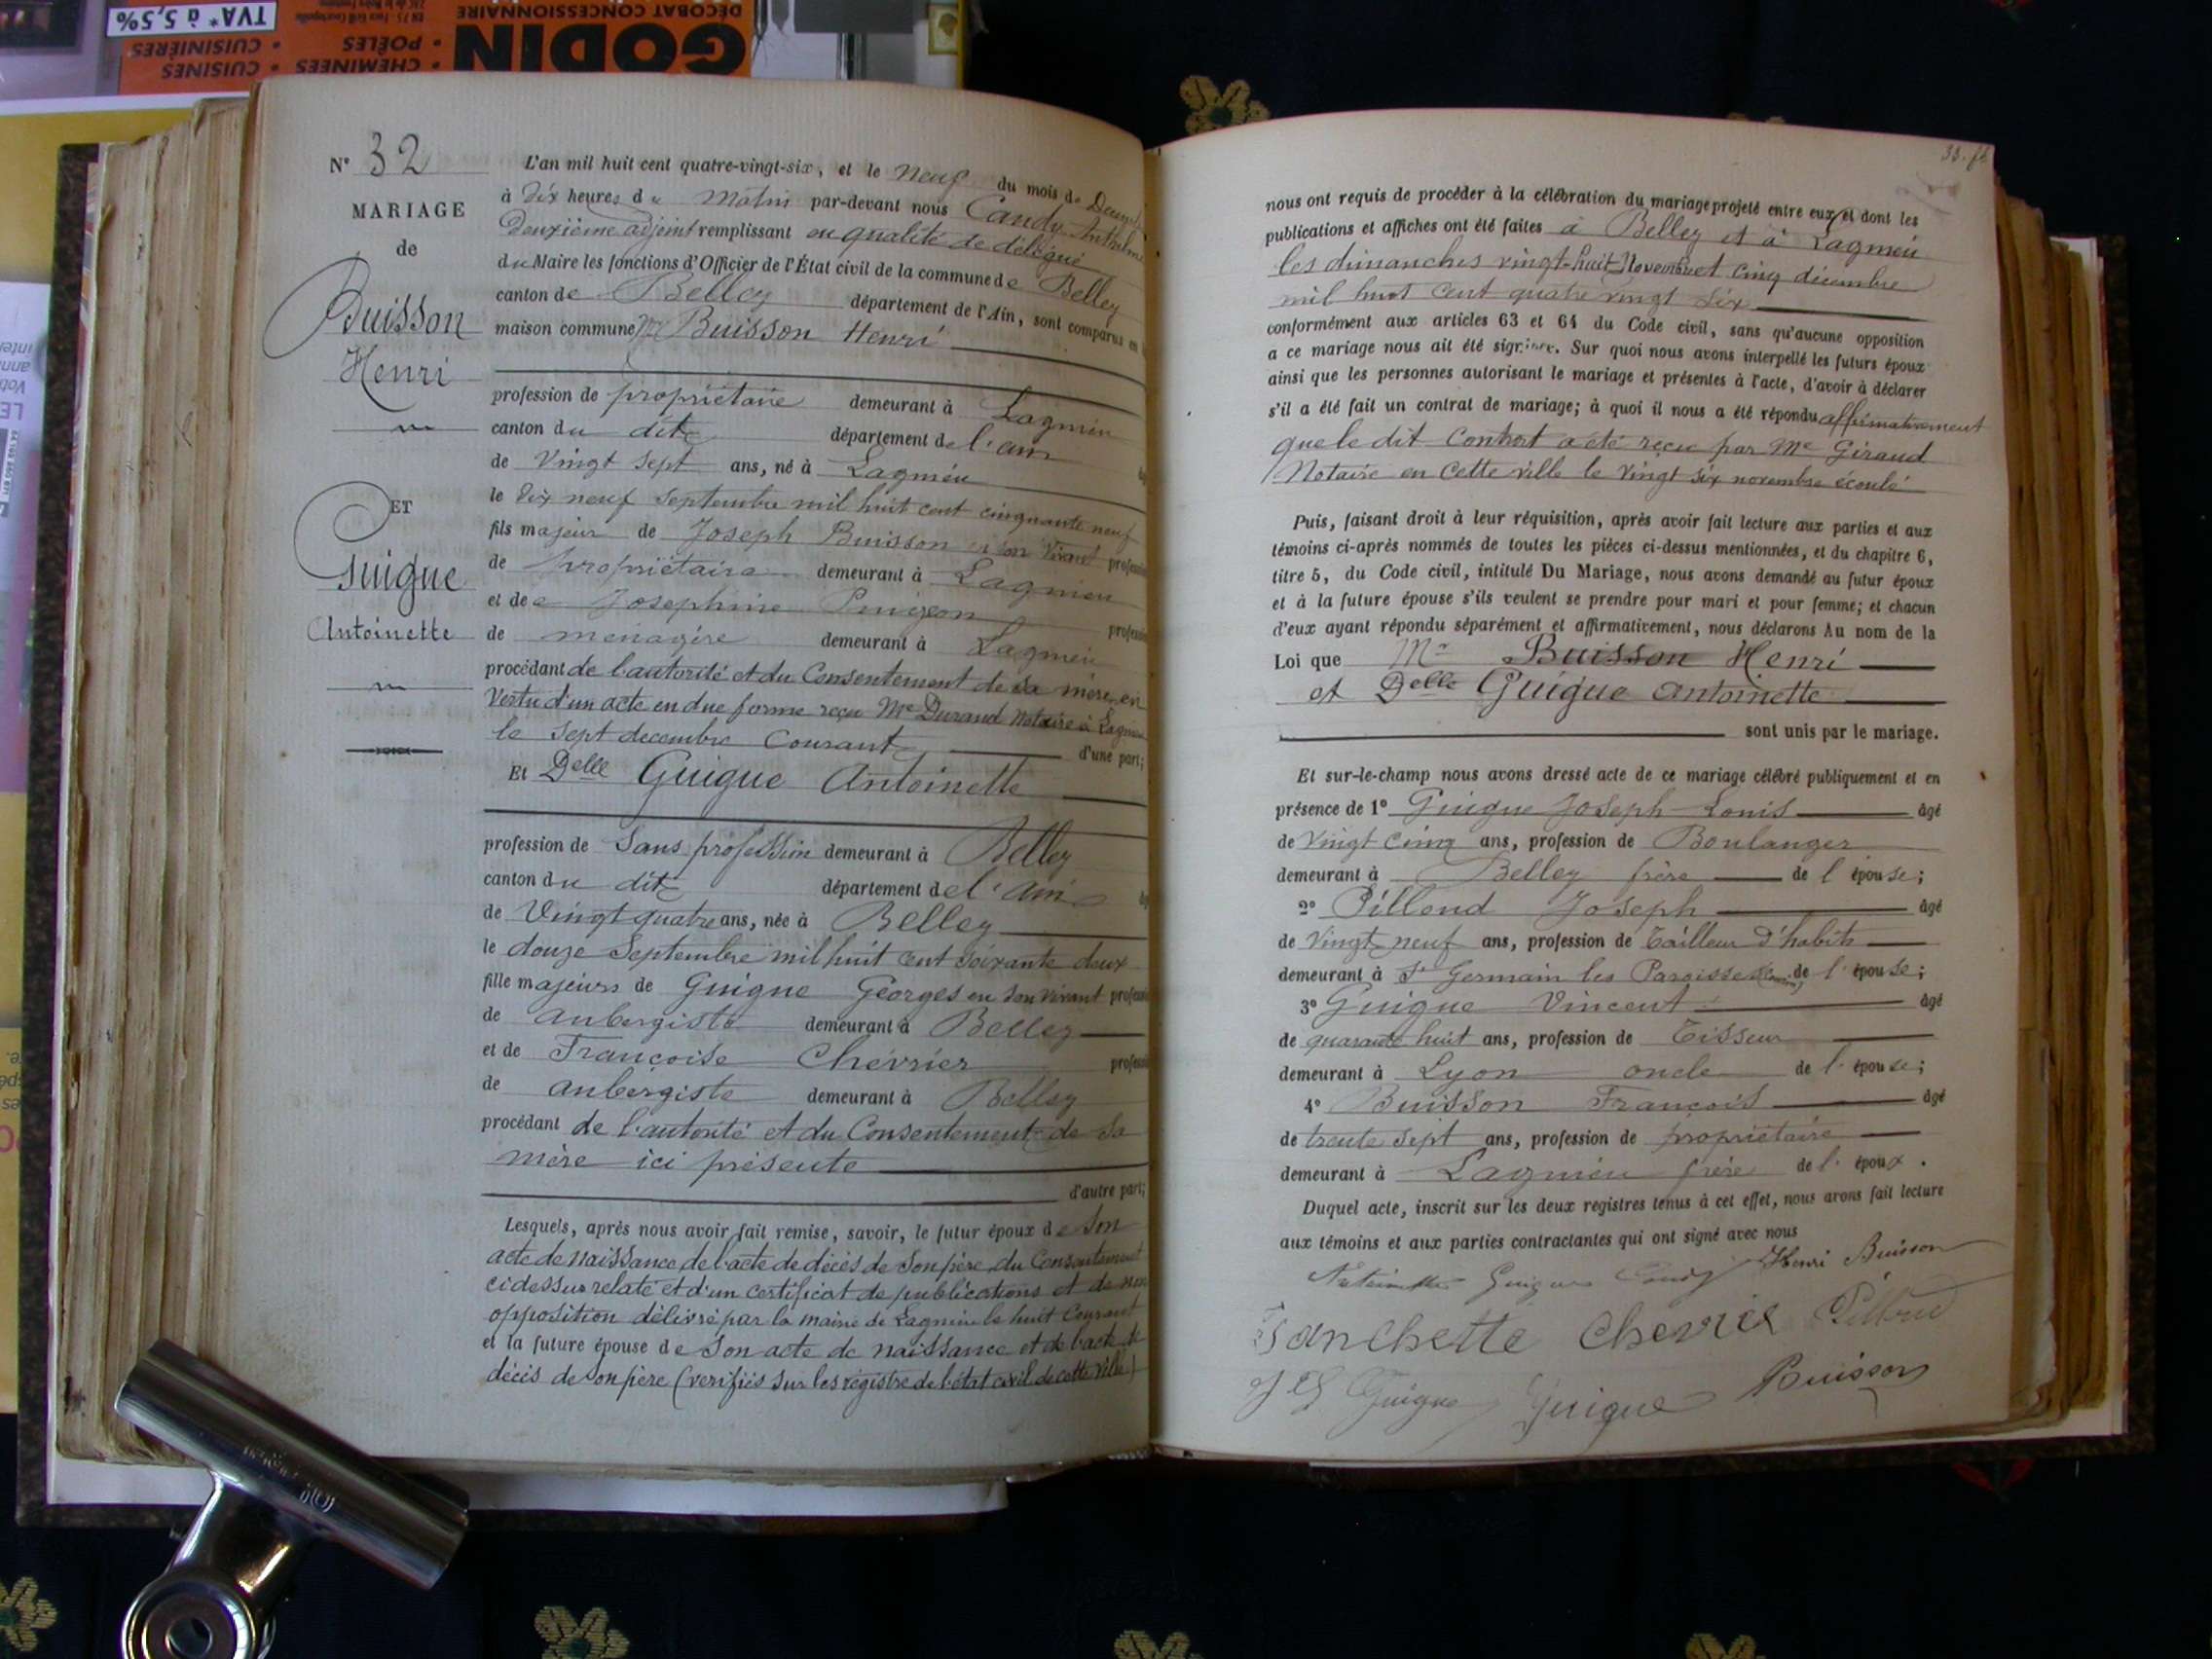 TVA* à 5,5%
DÉCOBAT CONCESSIONNAIRE
GODIN
• CHEMINÉES • CUISINES
• POÊLES • CUISINIÈRES
N° 32
MARIAGE
de
Buisson
Henri
ET
Guigue
Antoinette
L'an mil huit cent quatre-vingt-six, et le neuf du mois de
à dix heures du matin par-devant nous Candy Anthelme
Deuxième adjoint remplissant en qualité de délégué
du Maire les fonctions d'Officier de l'État civil de la commune de Belley
canton de Belley département de l'Ain, sont comparus en
maison commune Mr Buisson Henri
profession de propriétaire demeurant à Lagnieu
canton du dit département de l'ain
de Vingt sept ans, né à Lagnieu
le dix neuf septembre mil huit cent cinquante neuf
fils majeur de Joseph Buisson en son vivant
de propriétaire demeurant à Lagnieu
et de Josephine
de ménagère demeurant à Lagnieu
procédant de l'autorité et du Consentement de sa mère, en
Vertu d'un acte en due forme reçu Me Durand Notaire à Lagnieu
le sept decembre Courant d'une part;
Et Delle Guigue Antoinette
profession de Sans profession demeurant à Belley
canton du dit département de l'ain
de Vingt quatre ans, née à Belley
le douze Septembre mil huit cent soixante deux
fille majeure de Guigue Georges en son vivant
de aubergiste demeurant à Belley
et de Françoise Chevrier
de aubergiste demeurant à Belley
procédant de l'autorité et du Consentement de sa
mère ici présente
d'autre part;
Lesquels, après nous avoir fait remise, savoir, le futur époux de son
acte de naissance, de l'acte de décès de son père, du Consentement
ci dessus relaté et d'un certificat de publications et de non
opposition délivré par la mairie de Lagnieu le huit Courant
et la future épouse de son acte de naissance et de l'acte de
décès de son père (verifiés sur les registre de l'état civil de cette ville)
nous ont requis de procéder à la célébration du mariage projeté entre eux et dont les
publications et affiches ont été faites à Belley et à Lagnieu
les dimanches vingt-huit Novembre et cinq décembre
mil huit cent quatre vingt six
conformément aux articles 63 et 64 du Code civil, sans qu'aucune opposition
a ce mariage nous ait été signifiée. Sur quoi nous avons interpellé les futurs époux
ainsi que les personnes autorisant le mariage et présentes à l'acte, d'avoir à déclarer
s'il a été fait un contrat de mariage; à quoi il nous a été répondu affirmativement
que le dit Contrat a été reçu par Me Giraud
Notaire en cette ville le vingt six novembre écoulé
Puis, faisant droit à leur réquisition, après avoir fait lecture aux parties et aux
témoins ci-après nommés de toutes les pièces ci-dessus mentionnées, et du chapitre 6,
titre 5, du Code civil, intitulé Du Mariage, nous avons demandé au futur époux
et à la future épouse s'ils veulent se prendre pour mari et pour femme; et chacun
d'eux ayant répondu séparément et affirmativement, nous déclarons Au nom de la
Loi que Mr Buisson Henri
et Delle Guigue Antoinette
sont unis par le mariage.
Et sur-le-champ nous avons dressé acte de ce mariage célébré publiquement et en
présence de 1° Guigue Joseph Louis âgé
de vingt cinq ans, profession de Boulanger
demeurant à Belley frère de l'épouse;
2° Pilloud Joseph âgé
de vingt neuf ans, profession de tailleur d'habits
demeurant à St Germain les Paroisses de l'épouse;
3° Guigue Vincent âgé
de quarante huit ans, profession de Tisseur
demeurant à Lyon oncle de l'épouse;
4° Buisson François âgé
de trente sept ans, profession de propriétaire
demeurant à Lagnieu frère de l'époux.
Duquel acte, inscrit sur les deux registres tenus à cet effet, nous avons fait lecture
aux témoins et aux parties contractantes qui ont signé avec nous
Antoinette Guigue Candy Henri Buisson
Fanchette Chevrier Pilloud
Guigue Guigue Buisson